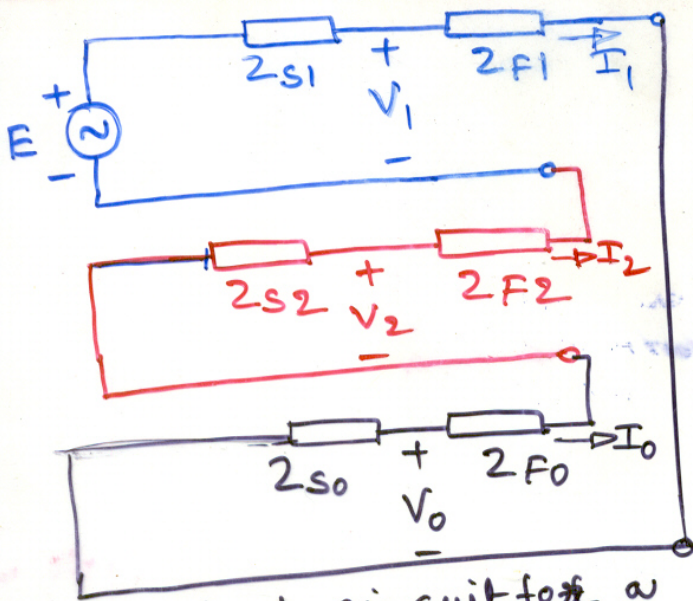 ZS1 + ZF1 I1
+ V1
E ~
- -
ZS2 + ZF2 I2
V2
-
ZS0 + ZF0 I0
V0
-
circuit for a